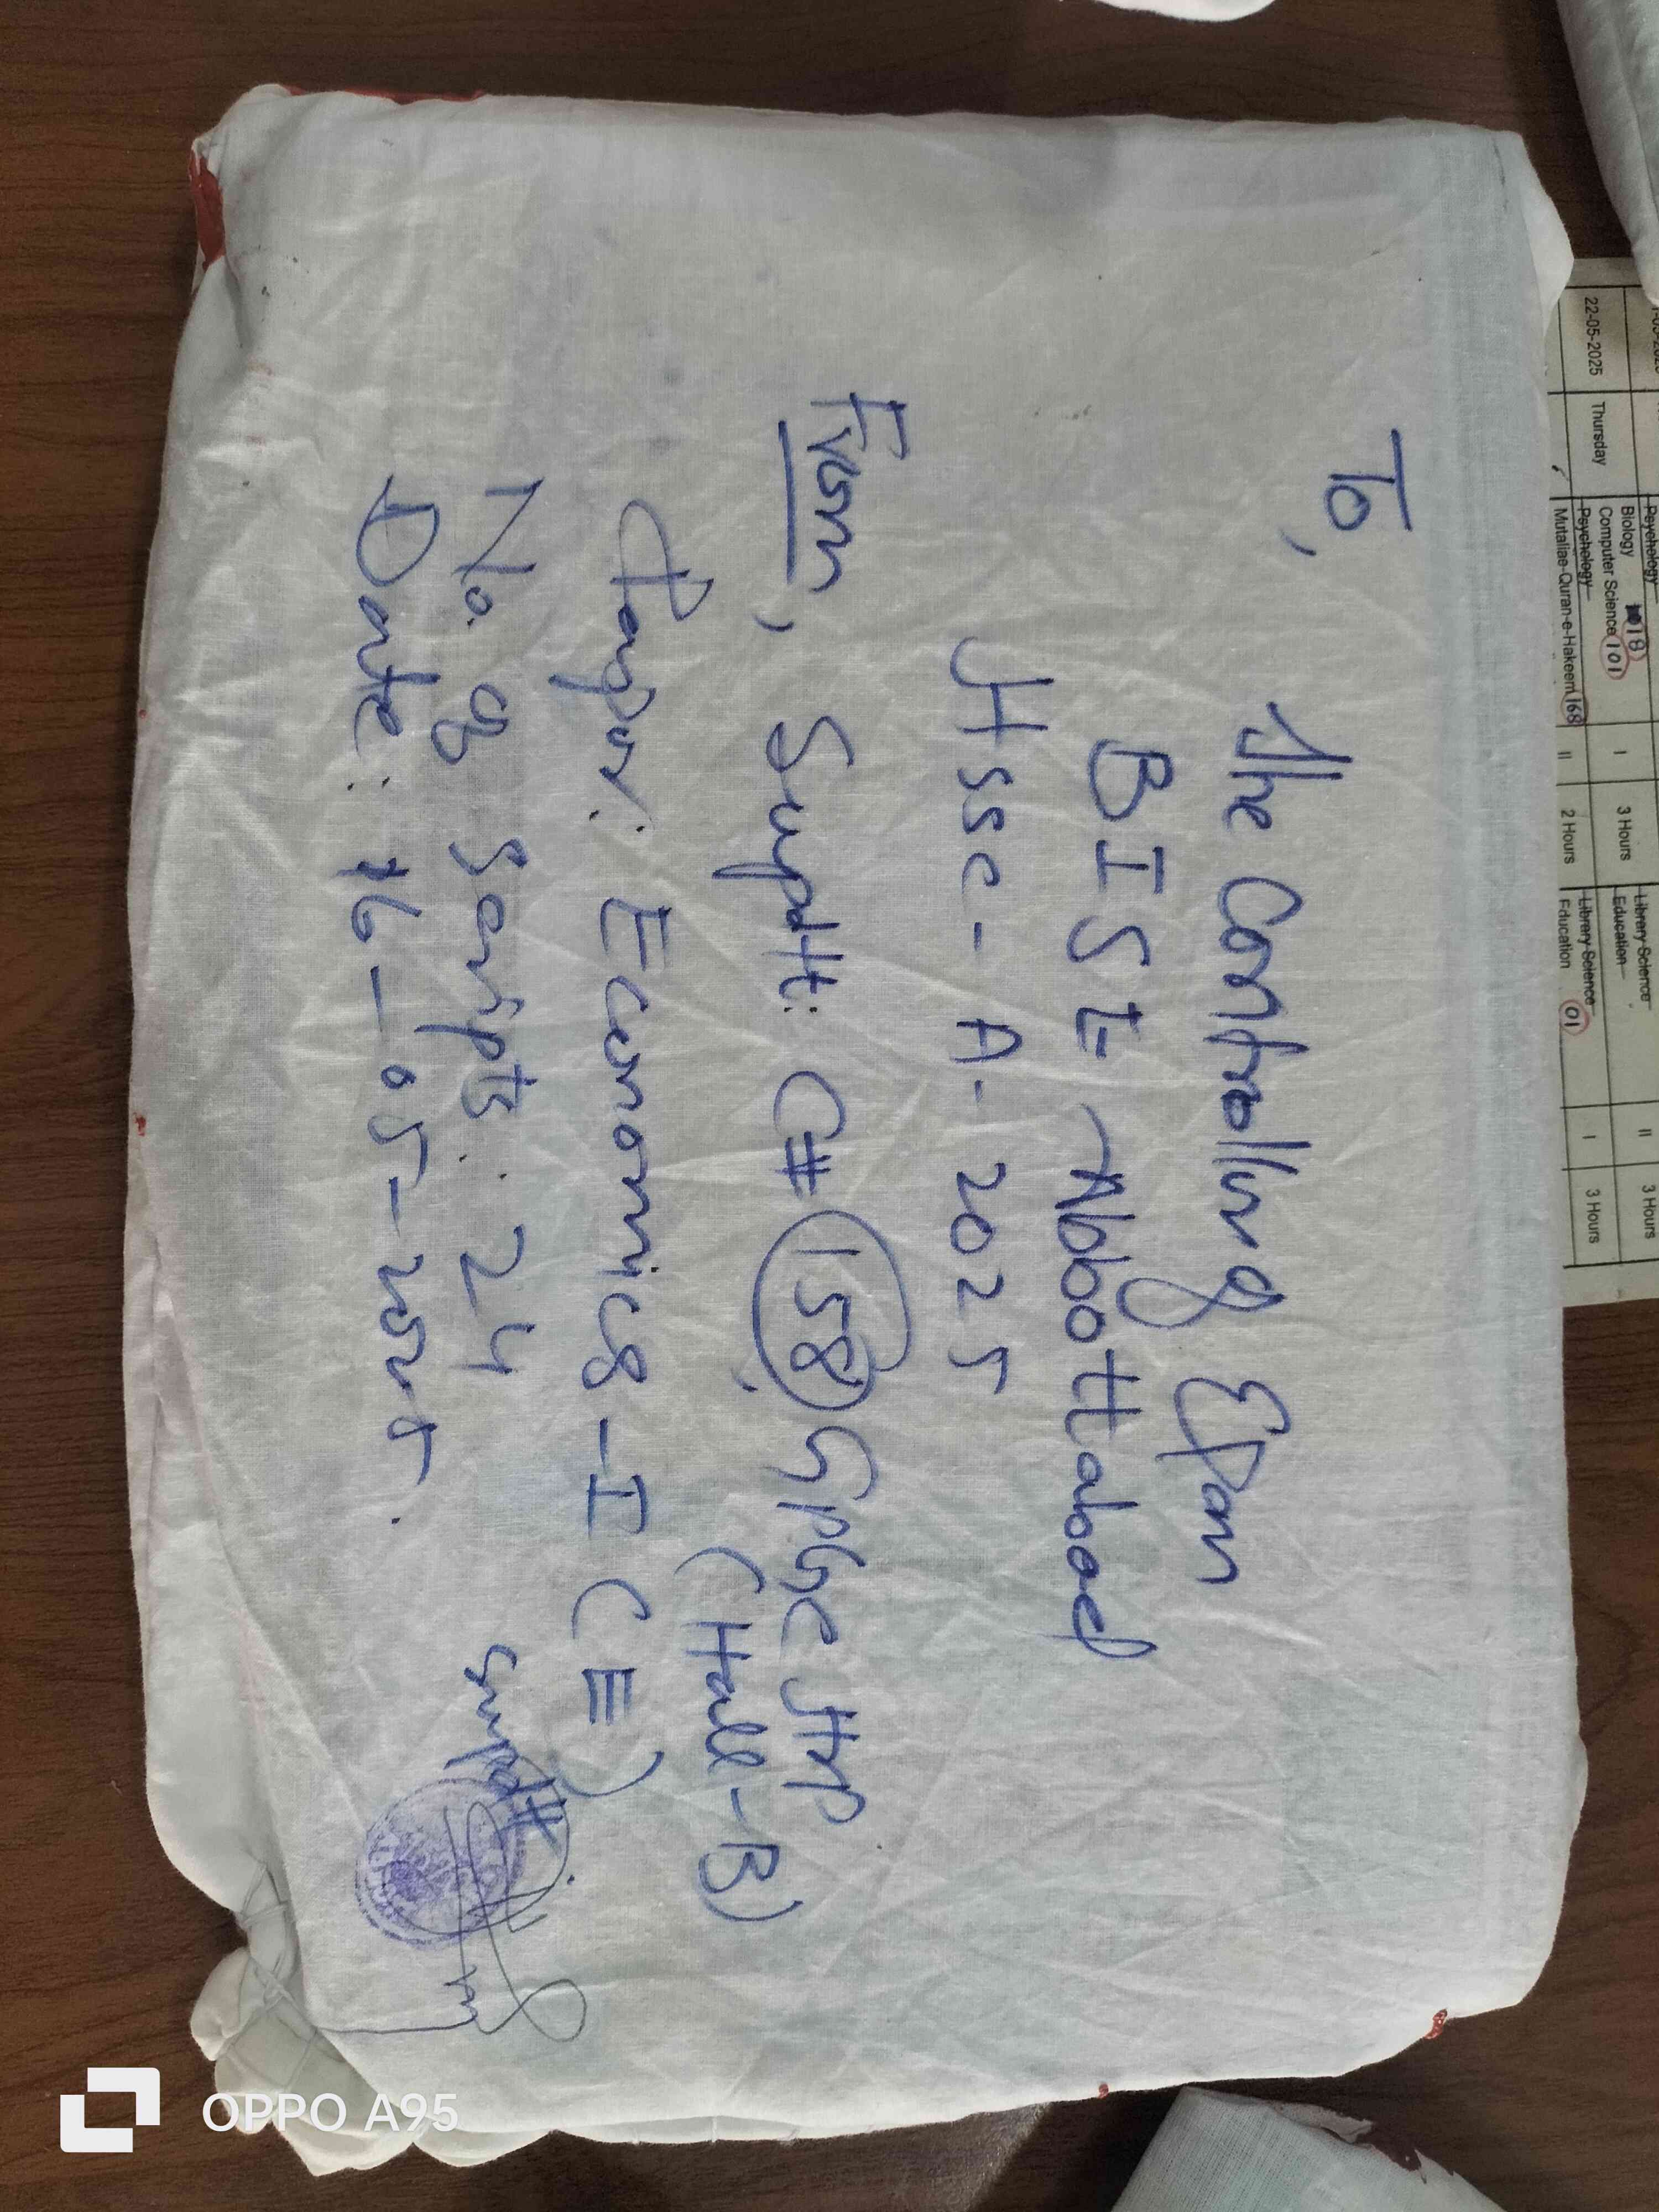 To,
The Controlling Exam
BISE Abbottabad
Hssc - A - 2025
From, Suptt: C# 158 GPGC Hrp
(Hall-B)
Paper: Economics-I (E)
No. of Scripts: 24
Date: 16-05-2025.
Suptt
22-05-2025 Thursday
Psychology
Biology 18 I 3 Hours
Computer Science 101
Psychology
Mutaliae-Quran-e-Hakeem 168 II 2 Hours
Library Science II 3 Hours
Education
Library Science I 3 Hours
Education 01
OPPO A95